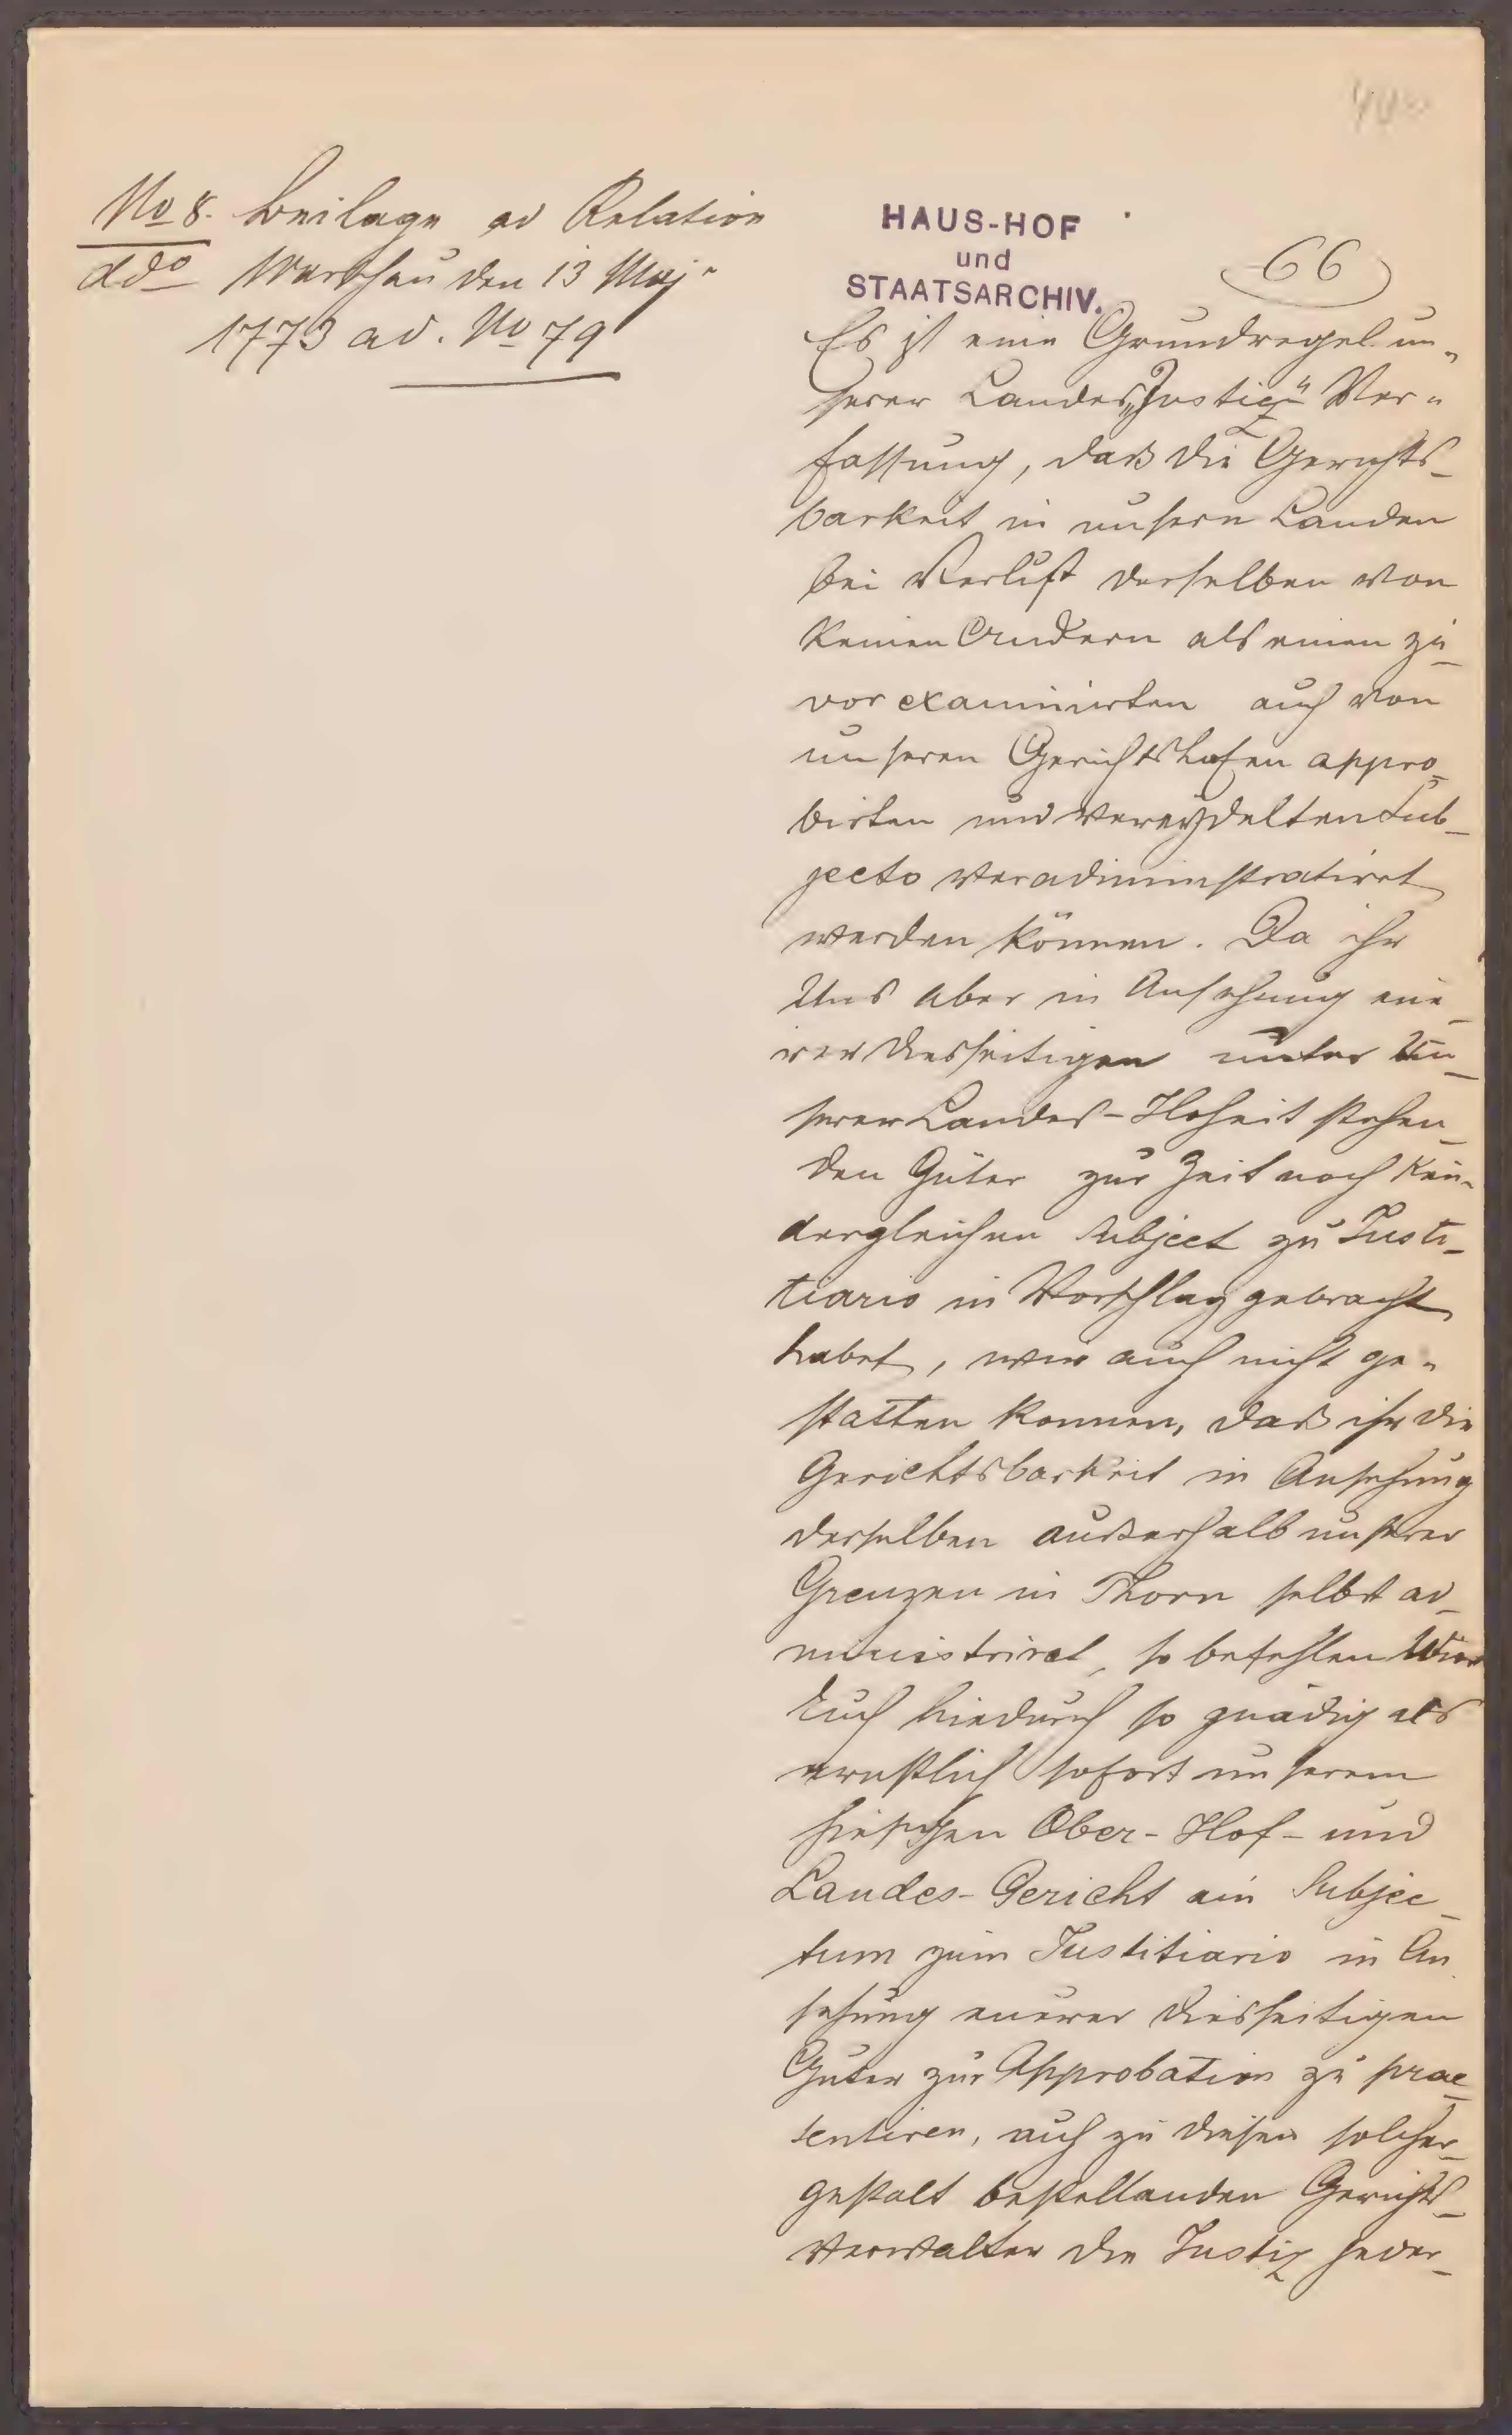 No 8. Beilage ad Relation
ddo Warschau den 13 Maj
1773 ad. No 79
HAUS-HOF
und
STAATSARCHIV.
66
Es ist eine Grundregel un„
serer Landes„Justiz" Ver„
fassung, daß die Gerichts-
barkeit in unsern Landen
bei Verlust derselben von
keinen Andern als einen zu-
vor examinirten auch von
unseren Gerichtshofen appro-
birten und vereydelten Sub-
jecto veradministratiret
werden können. Da ihr
Uns aber in Ansehung eue-
rer diesseitigen unter Un-
serer Landes-Hoheit stehen-
den Güter zur Zeit noch kein
dergleichen Subject zu Justi-
tiario in Vorschlag gebracht
habet, wir auch nicht ge-
statten konnen, daß ihr die
Gerichtsbarkeit in Ansehung
derselben außerhalb unserer
Grenzen in Thorn selbst ad-
ministriret, so befehlen Wir
Euch hiedurch so gnädig als
ernstlich sofort unserem
hiesigen Ober-Hof- und
Landes-Gericht ein Subjec-
tum zum Justitiario in An
sehung euerer diesseitigen
Guter zur Approbation zu prae-
sentiren, auch zu diesen solcher-
gestalt bestellanden Gerichts-
verwalter die Justiz jeder-